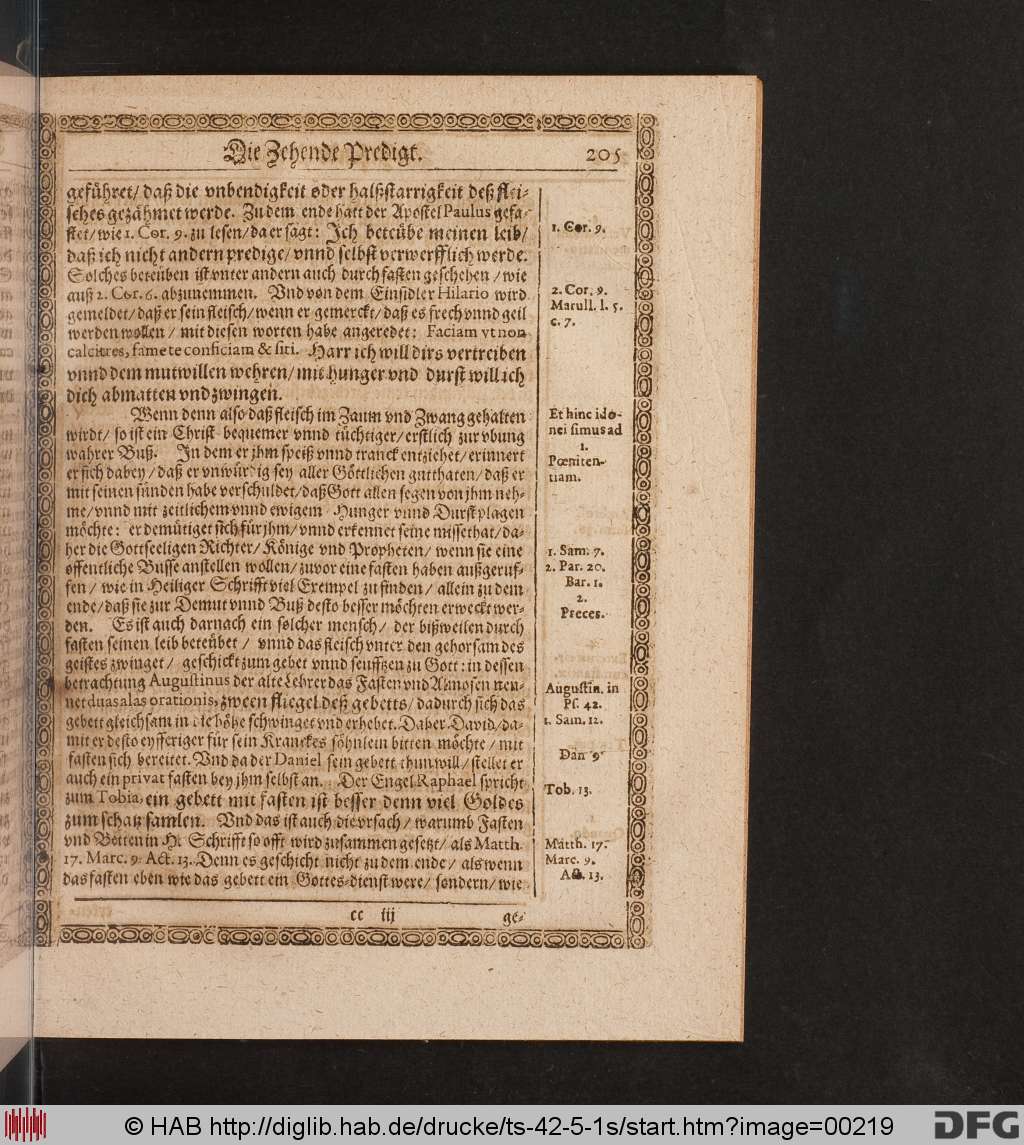 Die Zehende Predigt. 205
geführet/ daß die vnbendigkeit oder halßstarrigkeit deß flei-
sches gezähmet werde. Zu dem ende hatt der Apostel Paulus gefa-
stet/ wie 1. Cor. 9. zu lesen/ da er sagt: Ich beteübe meinen leib/
daß ich nicht andern predige/ vnnd selbst verwerfflich werde.
Solches beteüben ist vnter andern auch durch fasten geschehen/ wie
auß 2. Cor. 6. abzunemmen. Vnd von dem Einsidler Hilario wird
gemeldet/ daß er sein fleisch/ wenn er gemerckt/ daß es frech vnnd geil
werden wollen/ mit diesen worten habe angeredet: Faciam vt non
calcitres, fame te conficiam & siti. Harr ich will dirs vertreiben
vnnd dem mutwillen wehren/ mit hunger vnd durst will ich
dich abmatten vnd zwingen.
Wenn denn also daß fleisch im Zaum vnd Zwang gehalten
wirdt/ so ist ein Christ bequemer vnnd tüchtiger/ erstlich zur vbung
wahrer Buß. In dem er jhm speiß vnnd tranck entziehet/ erinnert
er sich dabey/ daß er vnwürdig sey aller Göttlichen gutthaten/ daß er
mit seinen sünden habe verschuldet/ daß Gott allen segen von jhm neh-
me/ vnnd mit zeitlichem vnnd ewigem Hunger vnnd Durst plagen
möchte: er demütiget sich für jhm/ vnnd erkennet seine missethat/ da-
her die Gottseeligen Richter/ Könige vnd Propheten/ wenn sie eine
offentliche Busse anstellen wollen/ zuvor eine fasten haben außgeruf-
fen/ wie in Heiliger Schrifft viel Exempel zu finden/ allein zu dem
ende/ daß sie zur Demut vnnd Buß desto besser möchten erweckt wer-
den. Es ist auch darnach ein solcher mensch/ der bißweilen durch
fasten seinen leib beteübet/ vnnd das fleisch vnter den gehorsam des
geistes zwinget/ geschickt zum gebet vnnd seufftzen zu Gott: in dessen
betrachtung Augustinus der alte Lehrer das Fasten vnd Almosen nen-
net duas alas orationis, zween fliegel deß gebetts/ dadurch sich das
gebett gleichsam in die höhe schwinget vnd erhebet. Daher David/ da-
mit er desto eyfferiger für sein Kranckes söhnlein bitten möchte/ mit
fasten sich bereitet. Vnd da der Daniel sein gebett thun will/ stellet er
auch ein privat fasten bey jhm selbst an. Der Engel Raphael spricht
zum Tobia, ein gebett mit fasten ist besser denn viel Goldes
zum schatz samlen. Vnd das ist auch die vrsach/ warumb Fasten
vnd Betten in H. Schrifft so offt wird zusammen gesetzt/ als Matth.
17. Marc. 9. Act. 13. Denn es geschicht nicht zu dem ende/ als wenn
das fasten eben wie das gebett ein Gottes-dienst were/ sondern/ wie
cc iij ge-
1. Cor. 9.
2. Cor. 9.
Marull. l. 5.
c. 7.
Et hinc ido-
nei simus ad
1.
Pœniten-
tiam.
1. Sam. 7.
2. Par. 20.
Bar. 1.
2.
Preces.
Augustin. in
Ps. 42.
1. Sam. 12.
Dan 9
Tob. 13.
Matth. 17.
Marc. 9.
Act. 13.
© HAB http://diglib.hab.de/drucke/ts-42-5-1s/start.htm?image=00219
DFG